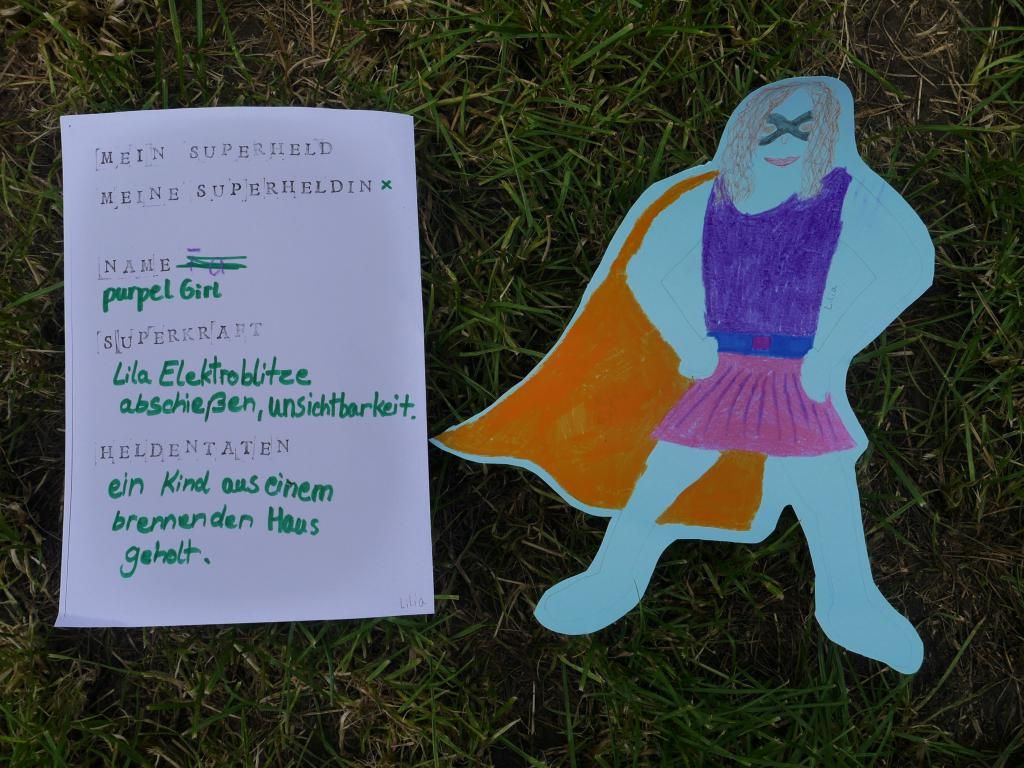 MEIN SUPERHELD
MEINE SUPERHELDIN x
NAME
purpel Girl
SUPERKRAFT
Lila Elektroblitze
abschießen, unsichtbarkeit.
HELDENTATEN
ein Kind aus einem
brennenden Haus
geholt.
Lilia
Lilia